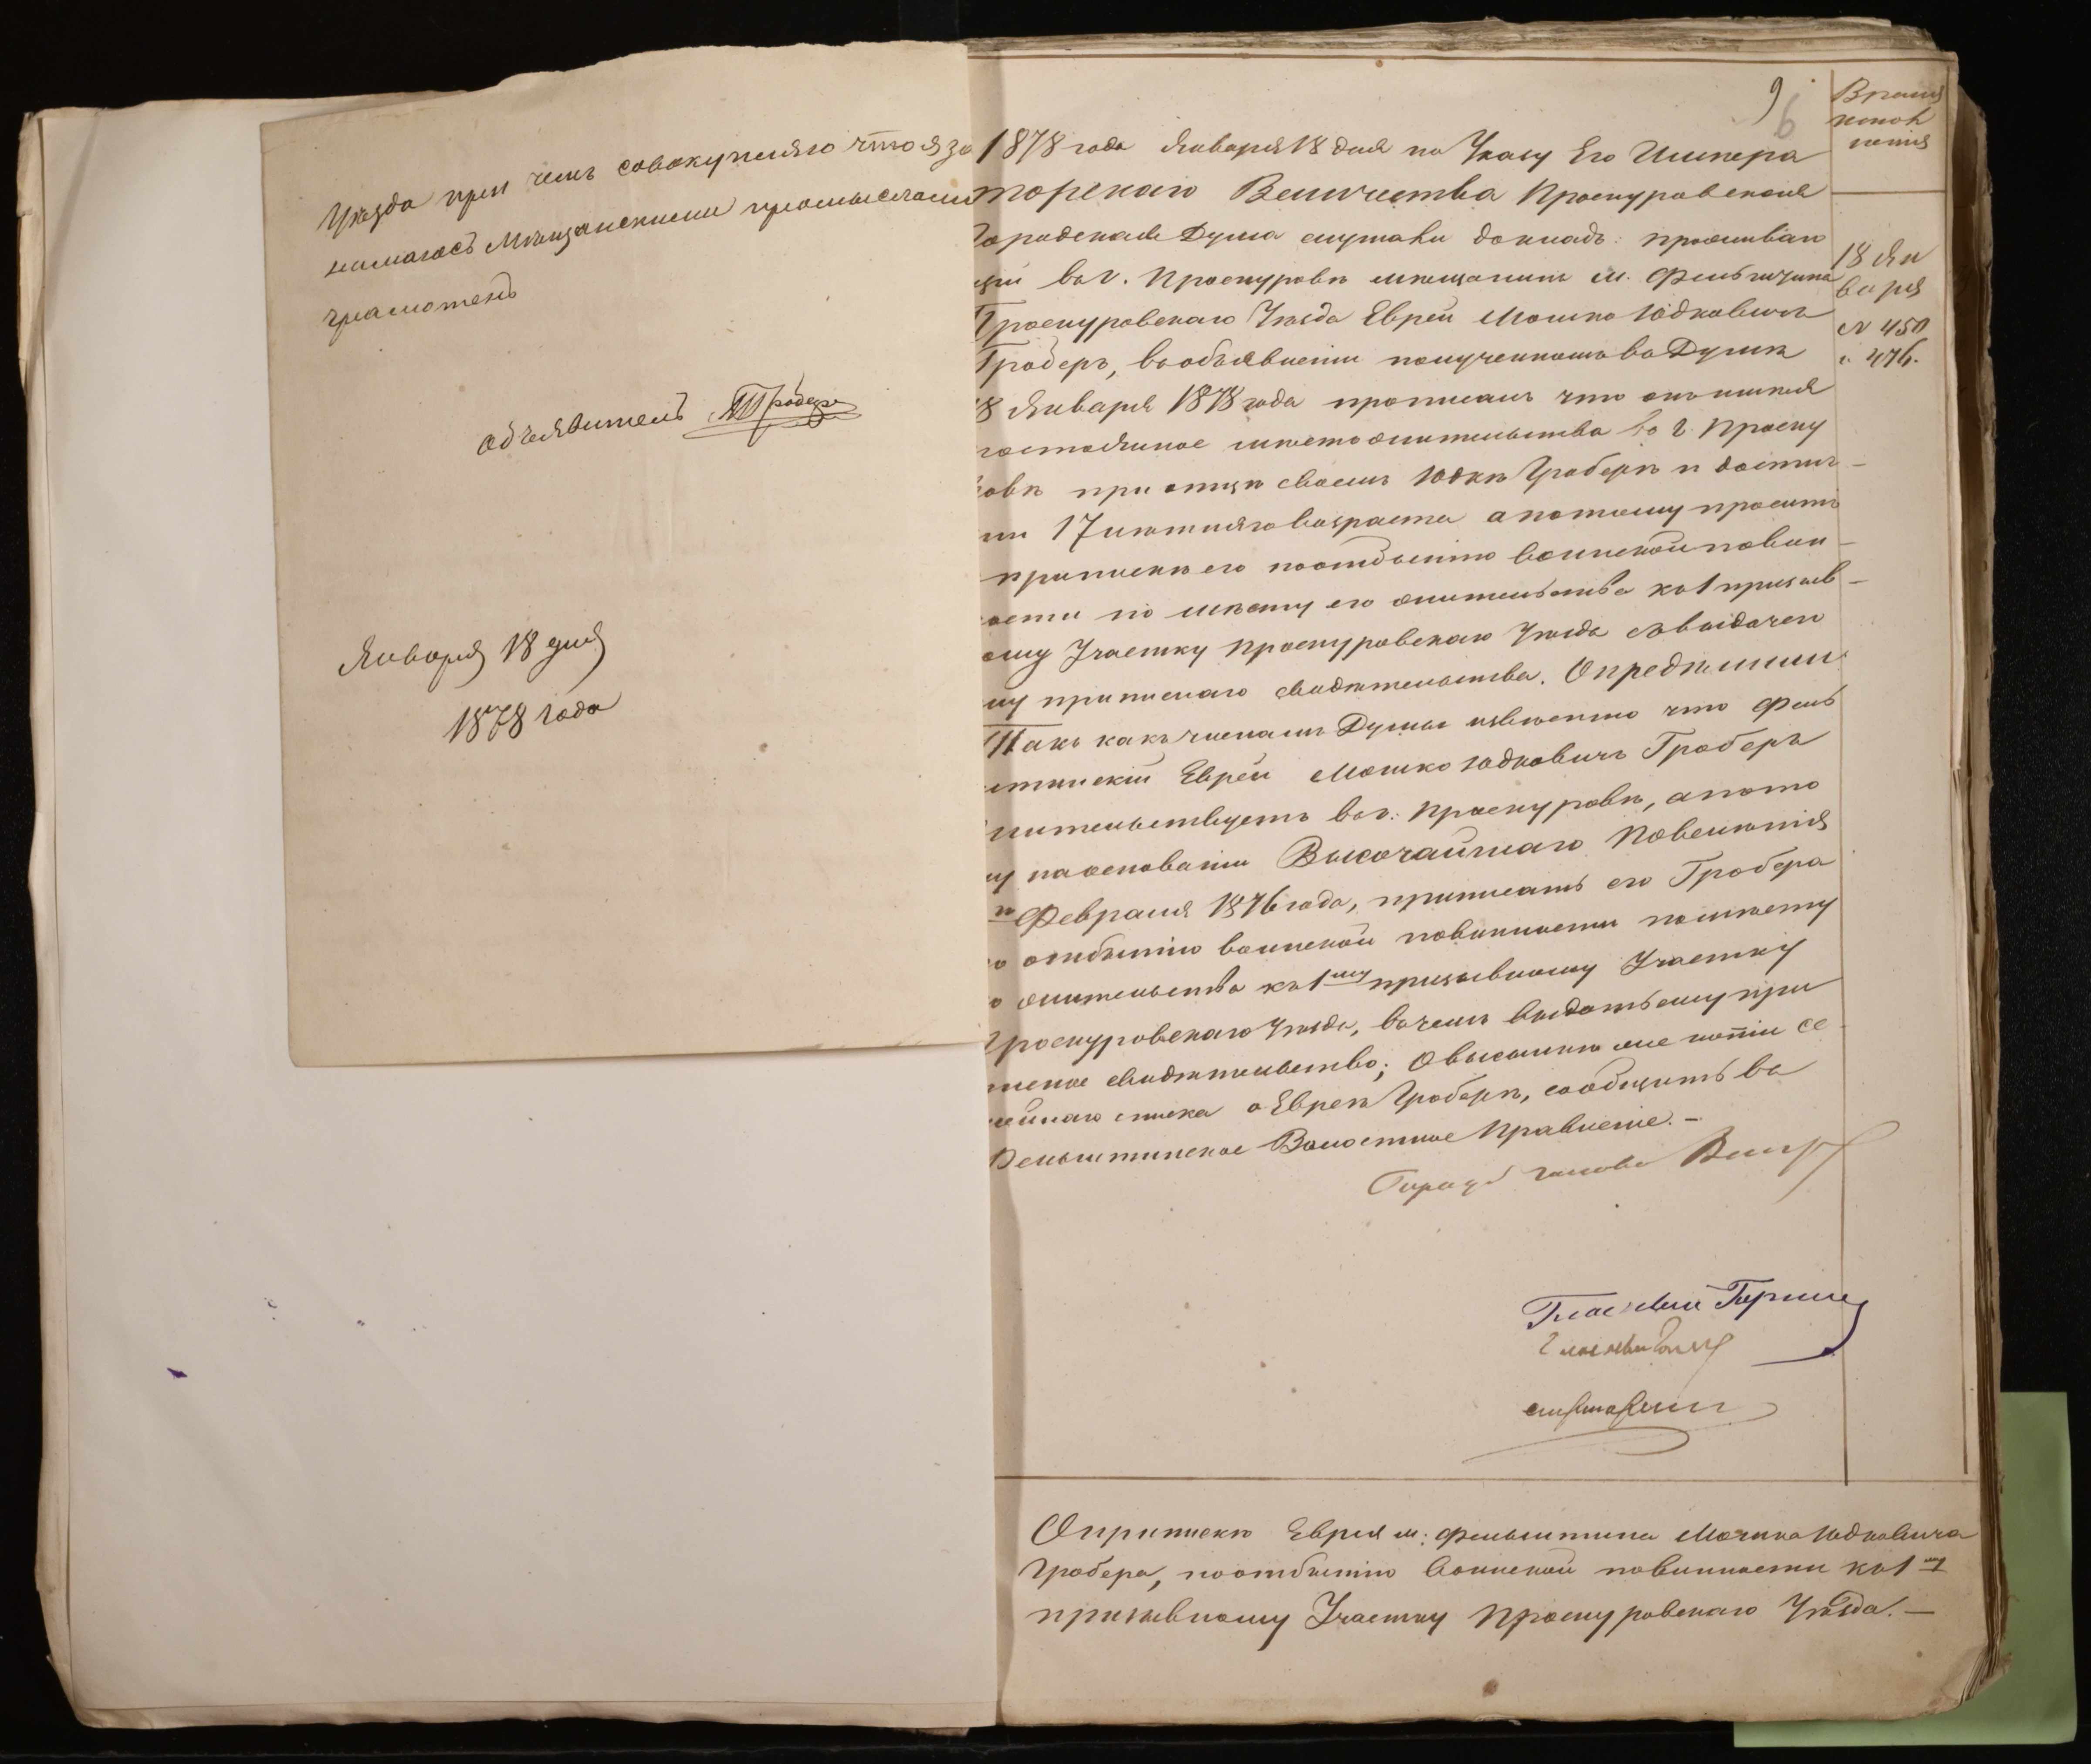 Уѣзда при чемъ совокупляю что я за
нимаюсь Мѣщанскими промыслами
грамотенъ
объявитель МГроберъ
Января 18 дня
1878 года
9
6
Время
испол
ненія
1878 года Января 18 дня по Указу Его Импера
торскаго Величества Проскуровская
Городская Дума слушали докладъ: проживаю
щій въ г. Проскуровѣ мѣщанинъ м. Фельштина
Проскуровскаго Уѣзда Еврей Мошко Юдковичъ
Гроберъ, въ объявленіи полученномъ въ Думѣ
18 Января 1878 года прописалъ что онъ имѣя
постоянное мѣсто жительства въ г. Проску
ровѣ при отцѣ своемъ Юдкѣ Гроберѣ и достиг-
ши 17 лѣтняго возраста а потому проситъ
припискѣ его по отбытію воинской повин-
ности по мѣсту его жительства къ 1 призыв-
ному Участку Проскуровскаго Уѣзда съ выдачею
му приписнаго свидѣтельства. Опредѣлили
Такъ какъ членамъ Думы извѣстно что Фель
штинскій Еврей Мошко Юдковичъ Гроберъ
жительствуетъ въ г: Проскуровѣ, а пото
му на основаніи Высочайшаго Повелѣнія
Февраля 1876 года, приписать его Гробера
по отбытію воинской повинности по мѣсту
жительства къ 1му призывному Участку
Проскуровскаго Уѣзда, въ чемъ выдать ему при
писное свидѣтельство; О высылкѣ же копіи се
мейнаго списка о Евреѣ Гроберѣ, сообщить въ
Фельштинское Волостное Правленіе.-
Город голова
Гласный
Гласный
18 Ян
варя
№ 450
и 476.
О припискѣ Еврея м: Фельштина Мошка Юдковича
Гробера, по отбытію воинской повинности къ 1му
призывному Участку Проскуровскаго Уѣзда.-